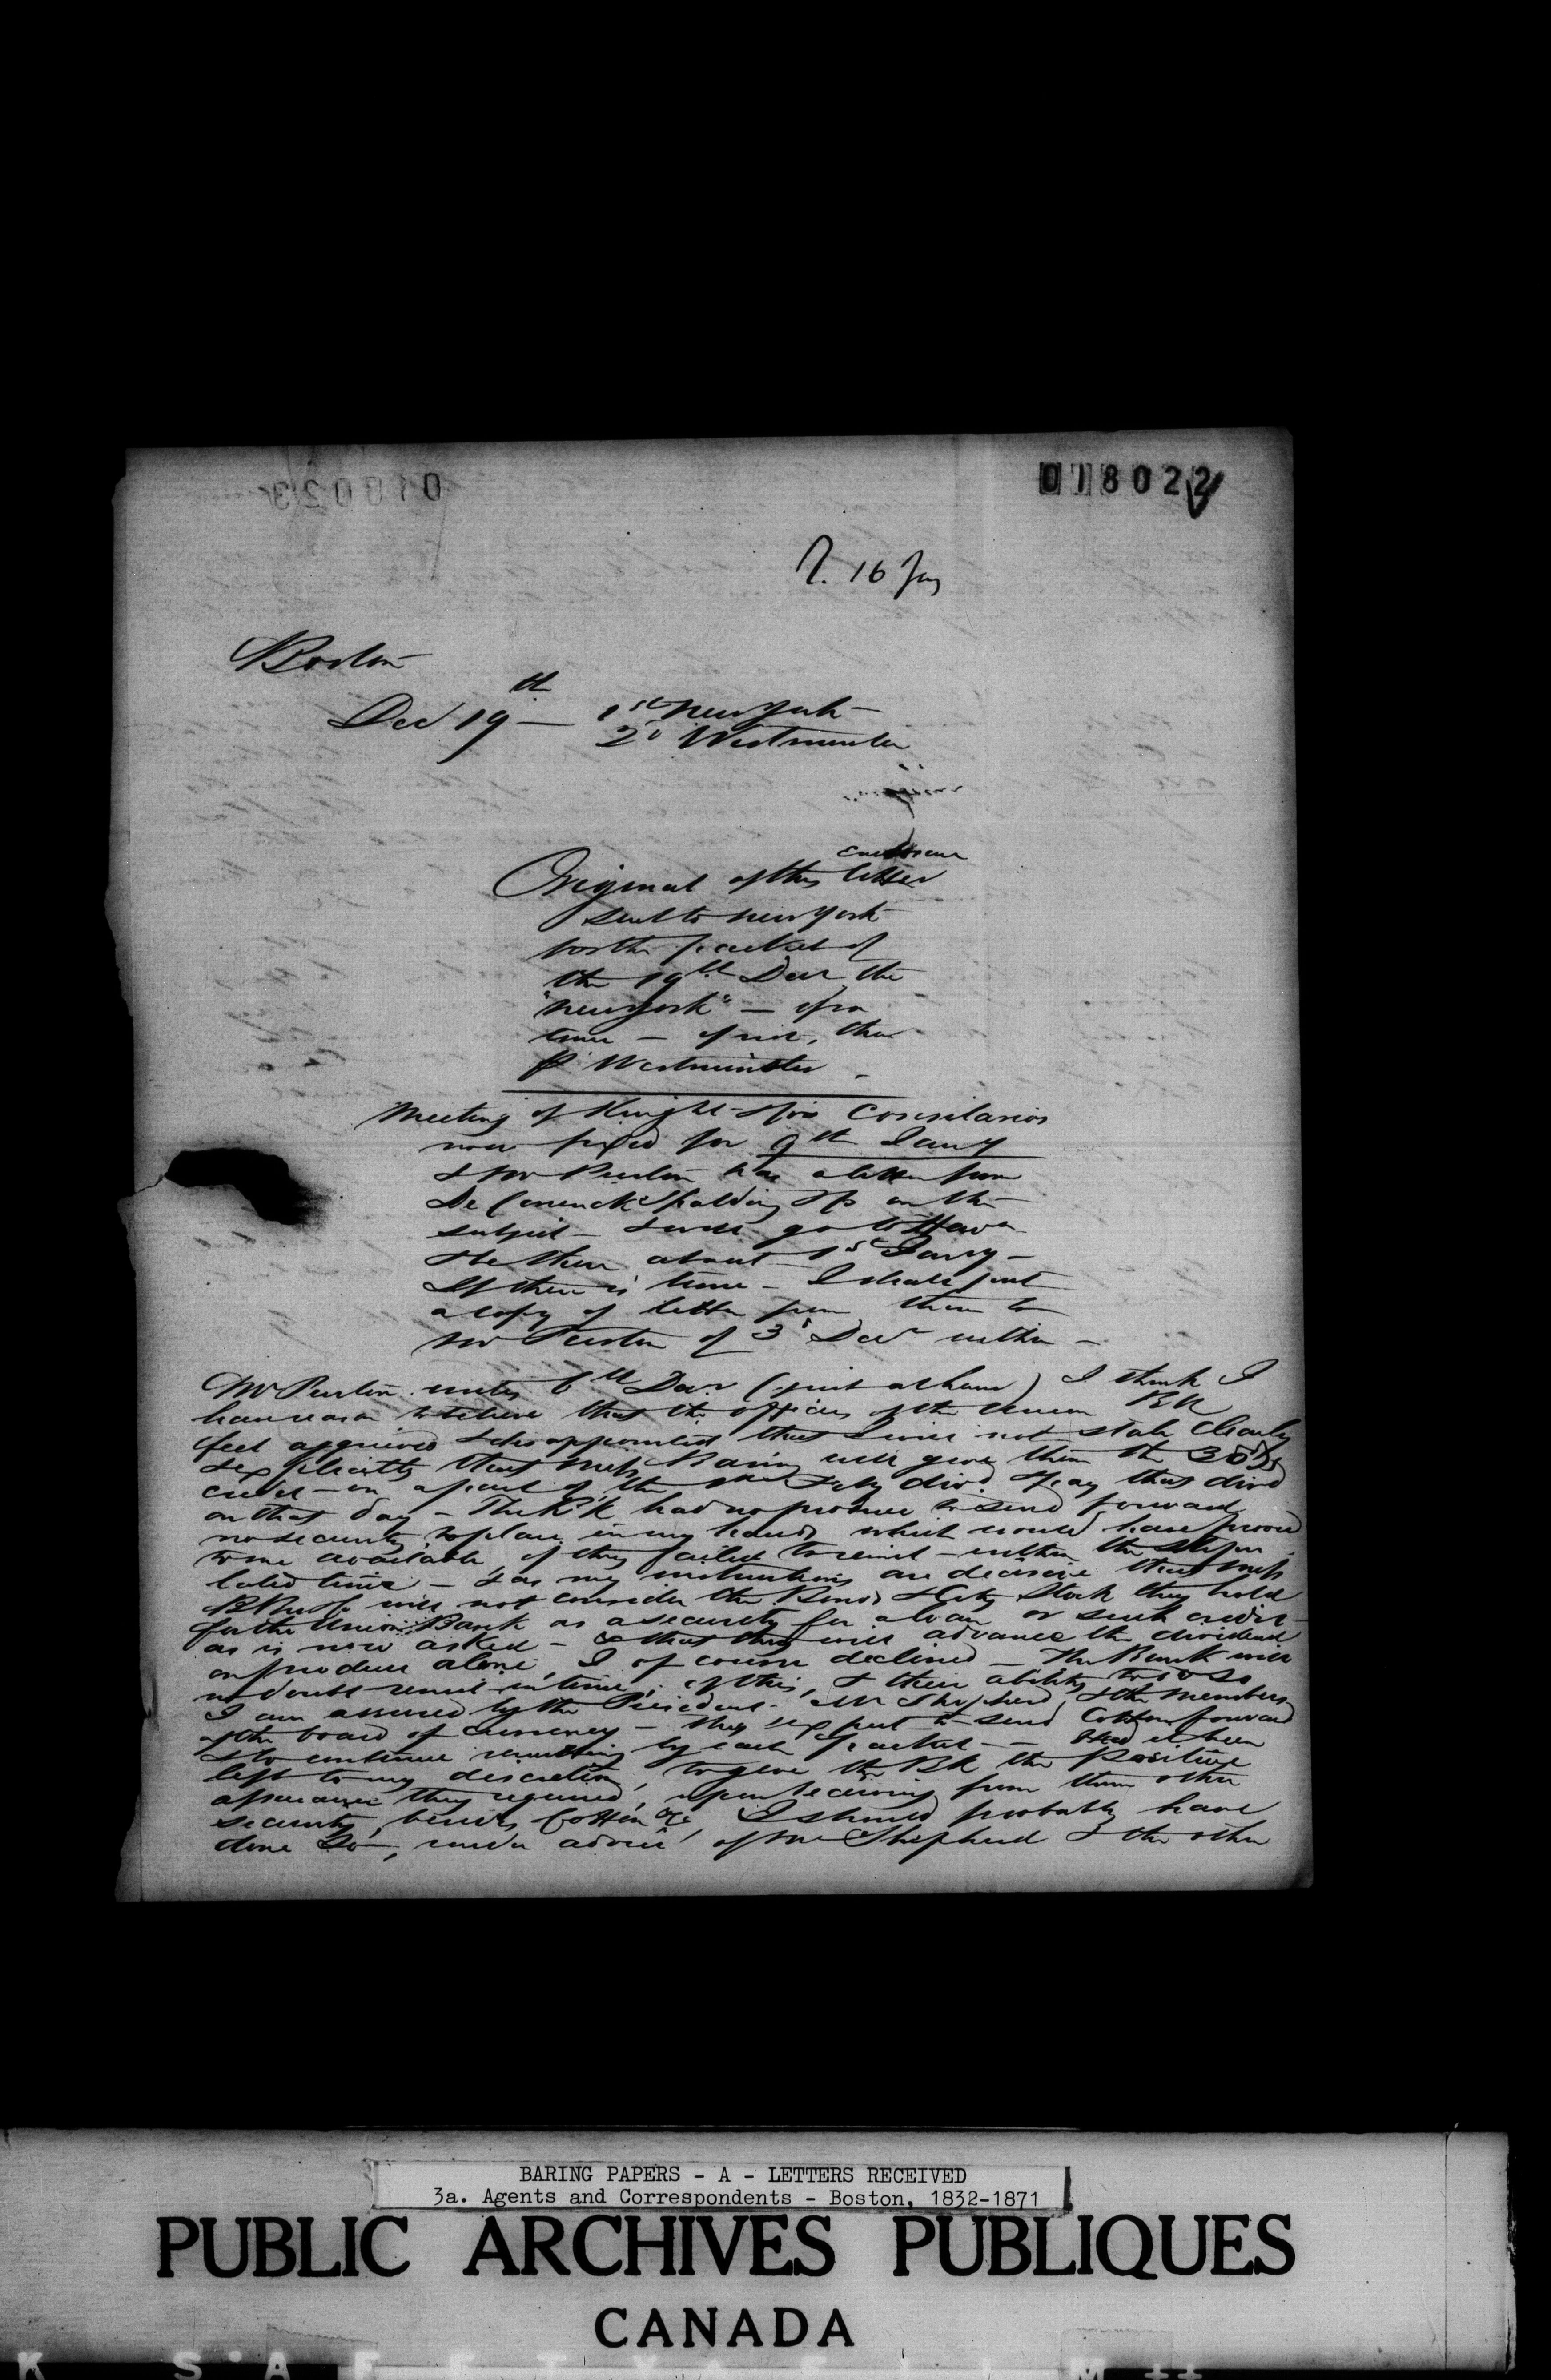 018022
R. 16 Jany
Boston
Dec 19th — 1st New York —
2d Westminster
enclosure
Original of this letter
sent to New York
for the packet of
the 19th Decr the
"New York" — if in
time — if not, then
p Westminster —
Meeting of Knight & Co's
now fixed for 9th Jany
& Mr Purton has a letter from
De Coninck Spalding & Co on the
subject — & will go to Havana
& be there about 1st Jany —
If there is time — I shall put
a copy of letter from them to
Mr Purton of 3d Decr within —
Mr Purton writes 6th Decr (just at hand) I think I
have reason to believe that the officers of the Union Bk
feel aggrieved & disappointed that I will not state clearly
& explicitly that Messrs Baring will give them the 30
credit — on a/c of the Feby divd & pay that divd
on that day — The Bk had no produce to send forward
no security to place in my hands which would have proved
to me available, if they failed to remit — within the stipu
lated time — & as my instructions are decisive that Messrs
B Bros & Co will not consider the Bonds & City Stock they hold
for the Union Bank as a security for a loan or such credit —
as is now asked — & that they will advance the dividend
on produce alone, I of course declined — The Bank will
no doubt remit in time; of this, & their ability to do so
I am assured by the President Mr Shepherd, & the members
of the board of Currency — they expect to send Cotton forward
& to continue remitting by each packet — Had it been
left to my discretion, to give the Bk the Positive
assurance they required, upon receiving from them other
security, besides Cotton &c I should probably have
done so —, under advice of Mr Shepherd & the other
BARING PAPERS - A - LETTERS RECEIVED
3a. Agents and Correspondents - Boston, 1832-1871
PUBLIC ARCHIVES PUBLIQUES
CANADA